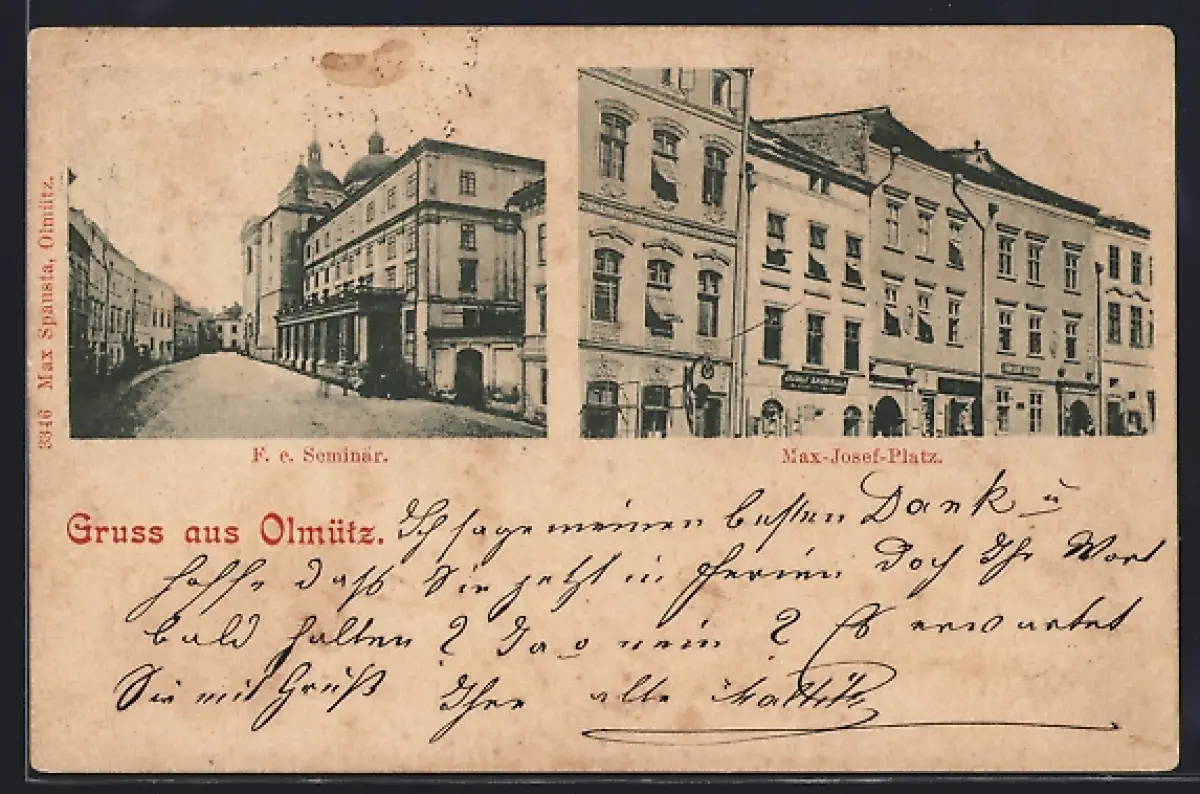 3346 Max Spausta, Olmütz.
F. e. Seminär.
Max-Josef-Platz.
Gruss aus Olmütz.
Ich sage meinen besten Dank u
hoffe daß Sie jetzt in Ferien doch Ihr Wort
bald halten? Ja o nein? Es erwartet
Sie mit Gruß Ihre alte